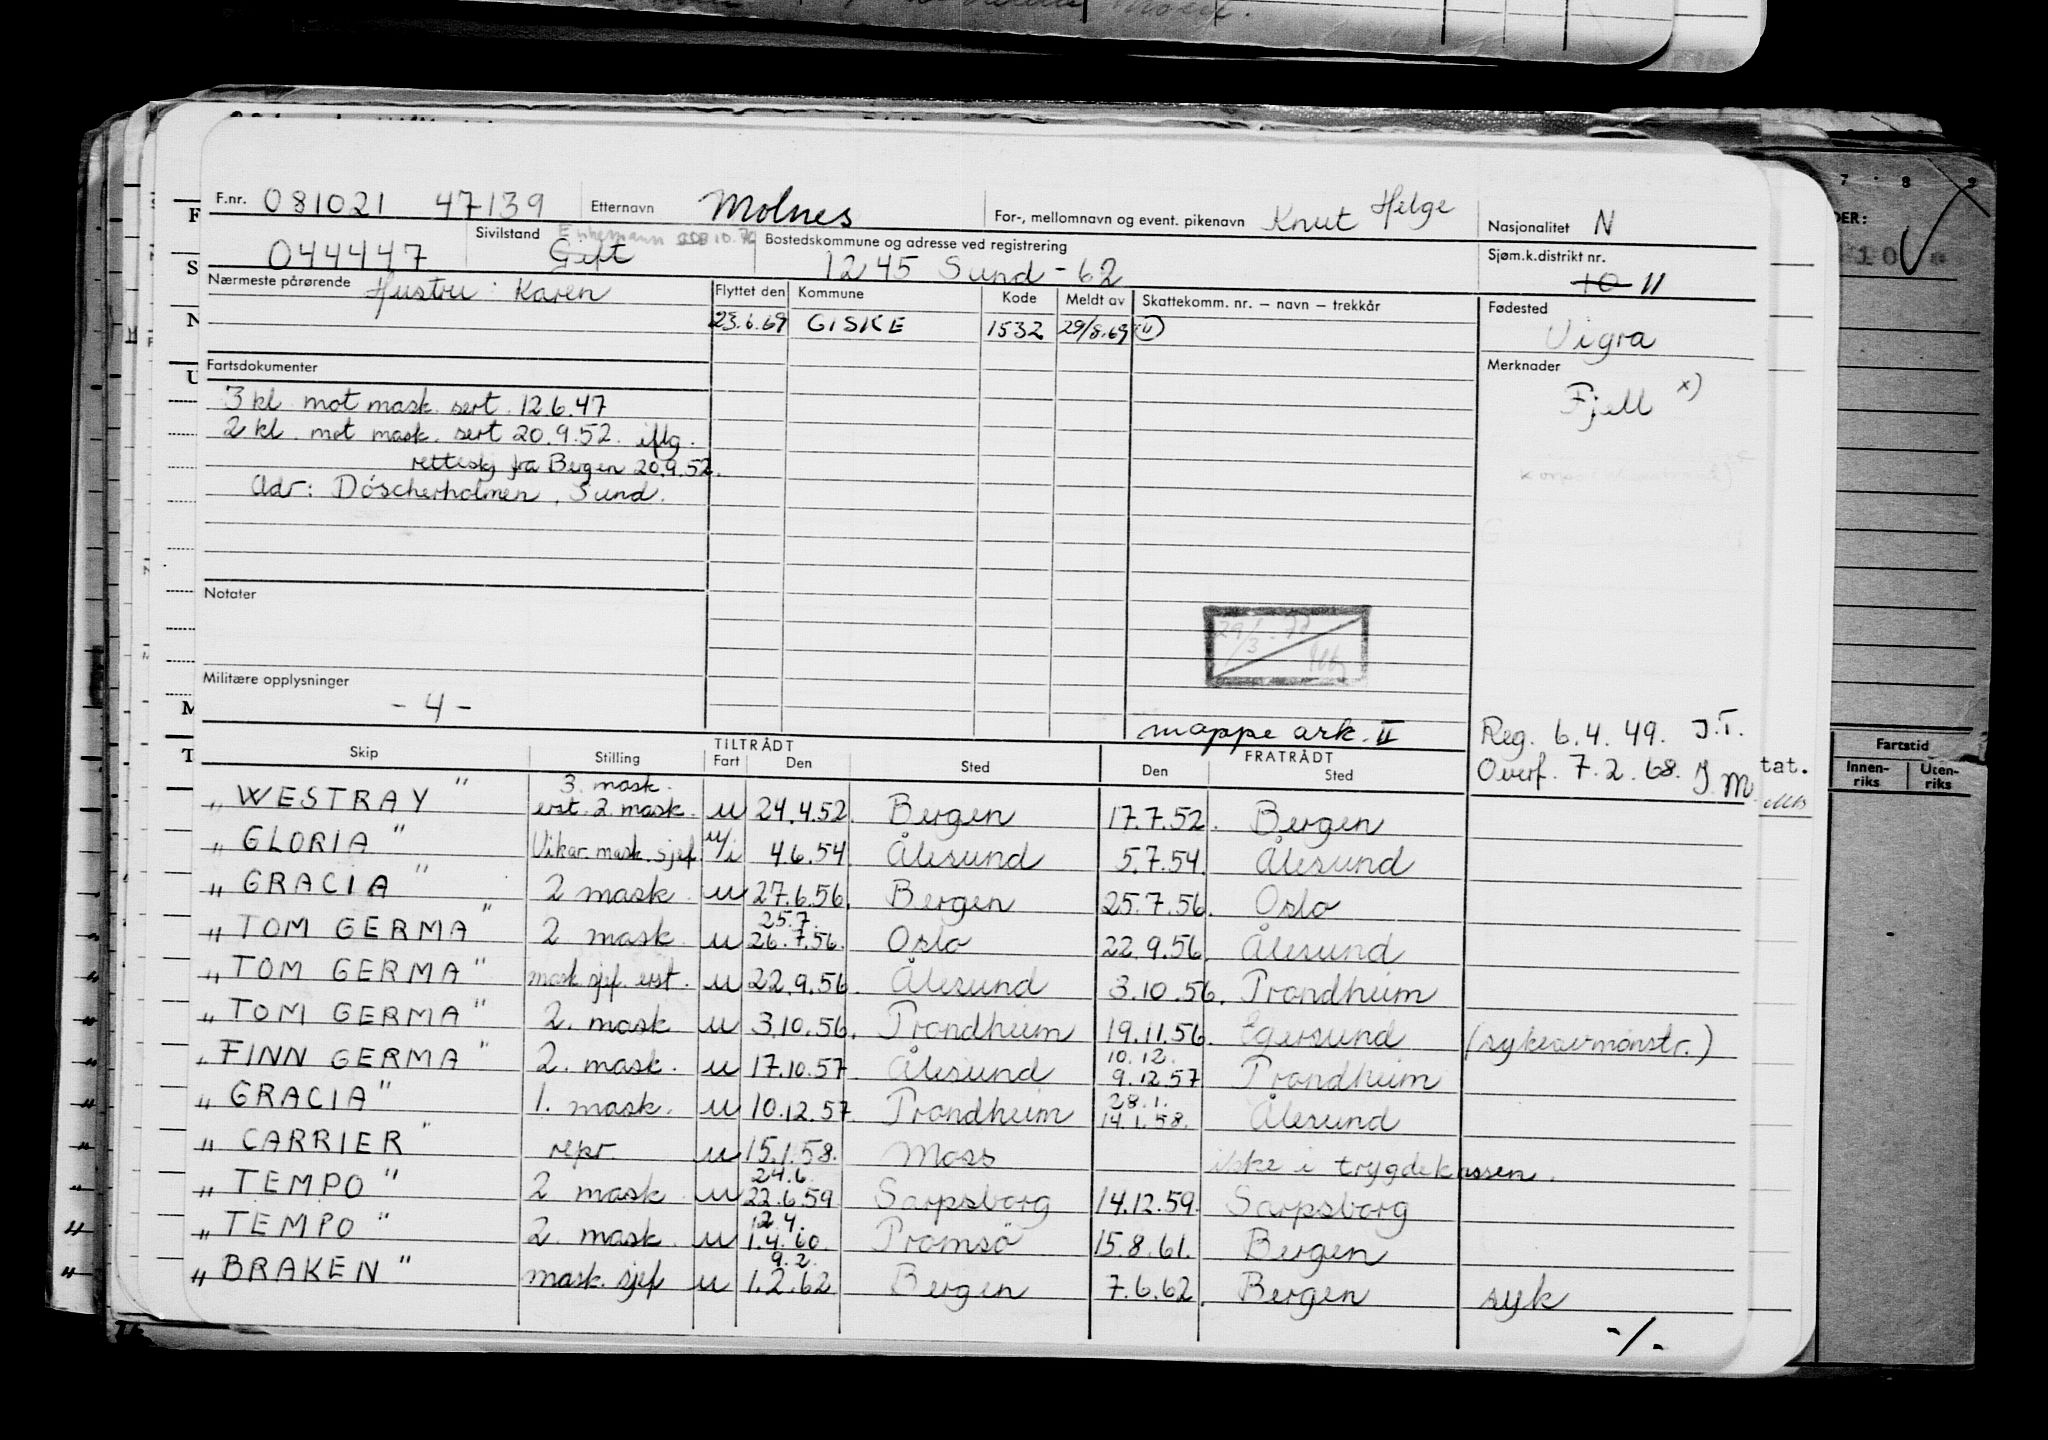 F.nr. 081021 47139 Etternavn Molnes For-, mellomnavn og event. pikenavn Knut Helge Nasjonalitet N
044447 Sivilstand Gift Bostedskommune og adresse ved registrering 1245 Sund - 62 Sjøm.k.distrikt nr. 10 11
Nærmeste pårørende Hustru: Karen Flyttet den Kommune Kode Meldt av Skattekomm. nr. – navn – trekkår Fødested
23.6.69 GISKE 1532 29/8.69 Vigra
Fartsdokumenter Merknader
3 kl. mot mask. sert. 12.6.47 Fjell x)
2 kl. mot mask. sert 20.9.52. iflg.
retteskj fra Bergen 20.9.52.
Adr: Döscherholmen, Sund.
Notater
Militære opplysninger
- 4 -
mappe ark. II Reg. 6.4.49. J.T.
Overf. 7.2.68. J.M.
Skip Stilling TILTRÅDT Fart Den Sted FRATRÅDT Den Sted
3. mask.
" WESTRAY " erst. 2. mask. u 24.4.52. Bergen 17.7.52. Bergen
" GLORIA " Vikar. mask. sjef u/i 4.6.54 Ålesund 5.7.54. Ålesund
" GRACIA " 2 mask. u 27.6.56. Bergen 25.7.56. Oslo
25.7.
" TOM GERMA " 2 mask. u 26.7.56. Oslo 22.9.56. Ålesund
" TOM GERMA " mask sjef. erst. u 22.9.56. Ålesund 3.10.56. Trondheim
" TOM GERMA " 2. mask u 3.10.56. Trondheim 19.11.56. Egersund (sykeavmønstr.)
10.12.
" FINN GERMA " 2. mask. u 17.10.57. Ålesund 9.12.57 Trondheim
28.1.
" GRACIA " 1. mask. u 10.12.57. Trondheim 14.1.58. Ålesund
" CARRIER " repr u 15.1.58. Moss ikke i trygdekassen.
24.6.
" TEMPO " 2 mask u 22.6.59 Sarpsborg 14.12.59. Sarpsborg
12.4.
" TEMPO " 2. mask. u 1.4.60. Tromsö 15.8.61. Bergen
9.2.
" BRAKEN " mask. sjef u 1.2.62 Bergen 7.6.62. Bergen syk
-/-
tat.
Fartstid
Innen-riks Uten-riks